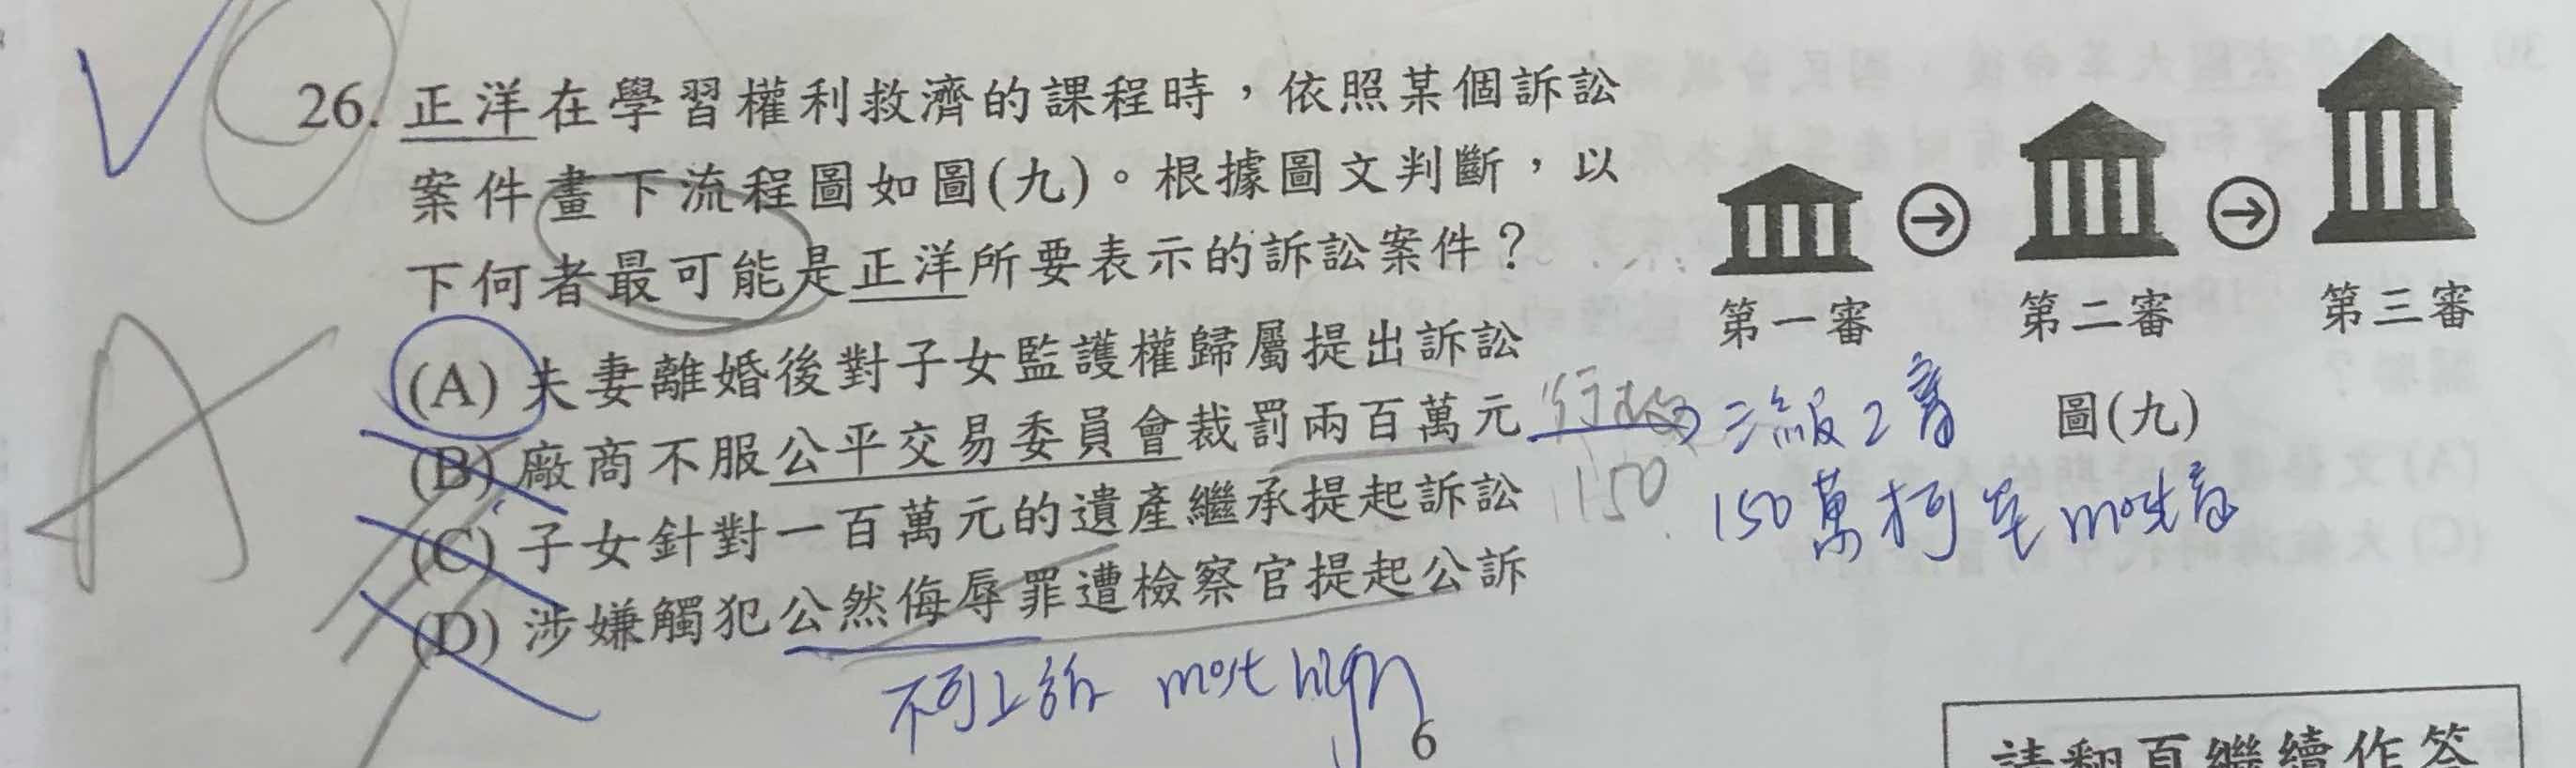 26. 正洋在學習權利救濟的課程時，依照某個訴訟
案件畫下流程圖如圖(九)。根據圖文判斷，以
下何者最可能是正洋所要表示的訴訟案件？
(A) 夫妻離婚後對子女監護權歸屬提出訴訟
(B) 廠商不服公平交易委員會裁罰兩百萬元
(C) 子女針對一百萬元的遺產繼承提起訴訟
(D) 涉嫌觸犯公然侮辱罪遭檢察官提起公訴
第一審
第二審
第三審
圖(九)
行政
三級2審
150
150萬才可至most審
不可上訴 most high
A
6
請翻頁繼續作答